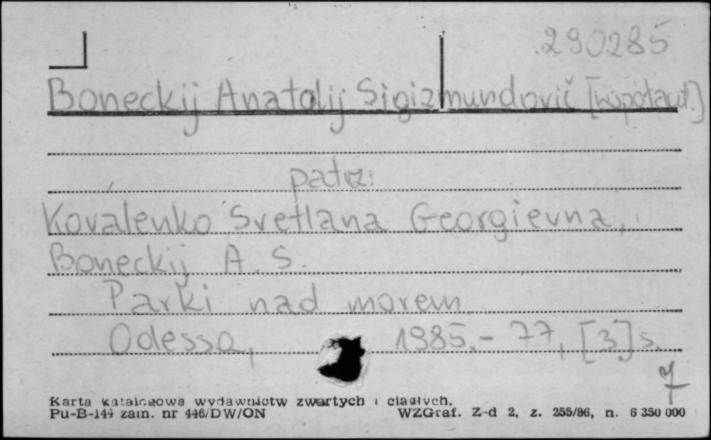 290285
Boneckij Anatolij Sigizmundovič [współaut.]
patrz:
Kovalenko Svetlana Georgievna,
Boneckij A. S.
Parki nad morem,
Odessa, 1985.- 77, [3] s.
7
Karta katalogowa wydawnictw zwartych i ciągłych.
Pu-B-144 zam. nr 446/DW/ON WZGraf. Z-d 2, z. 255/86, n. 6 350 000